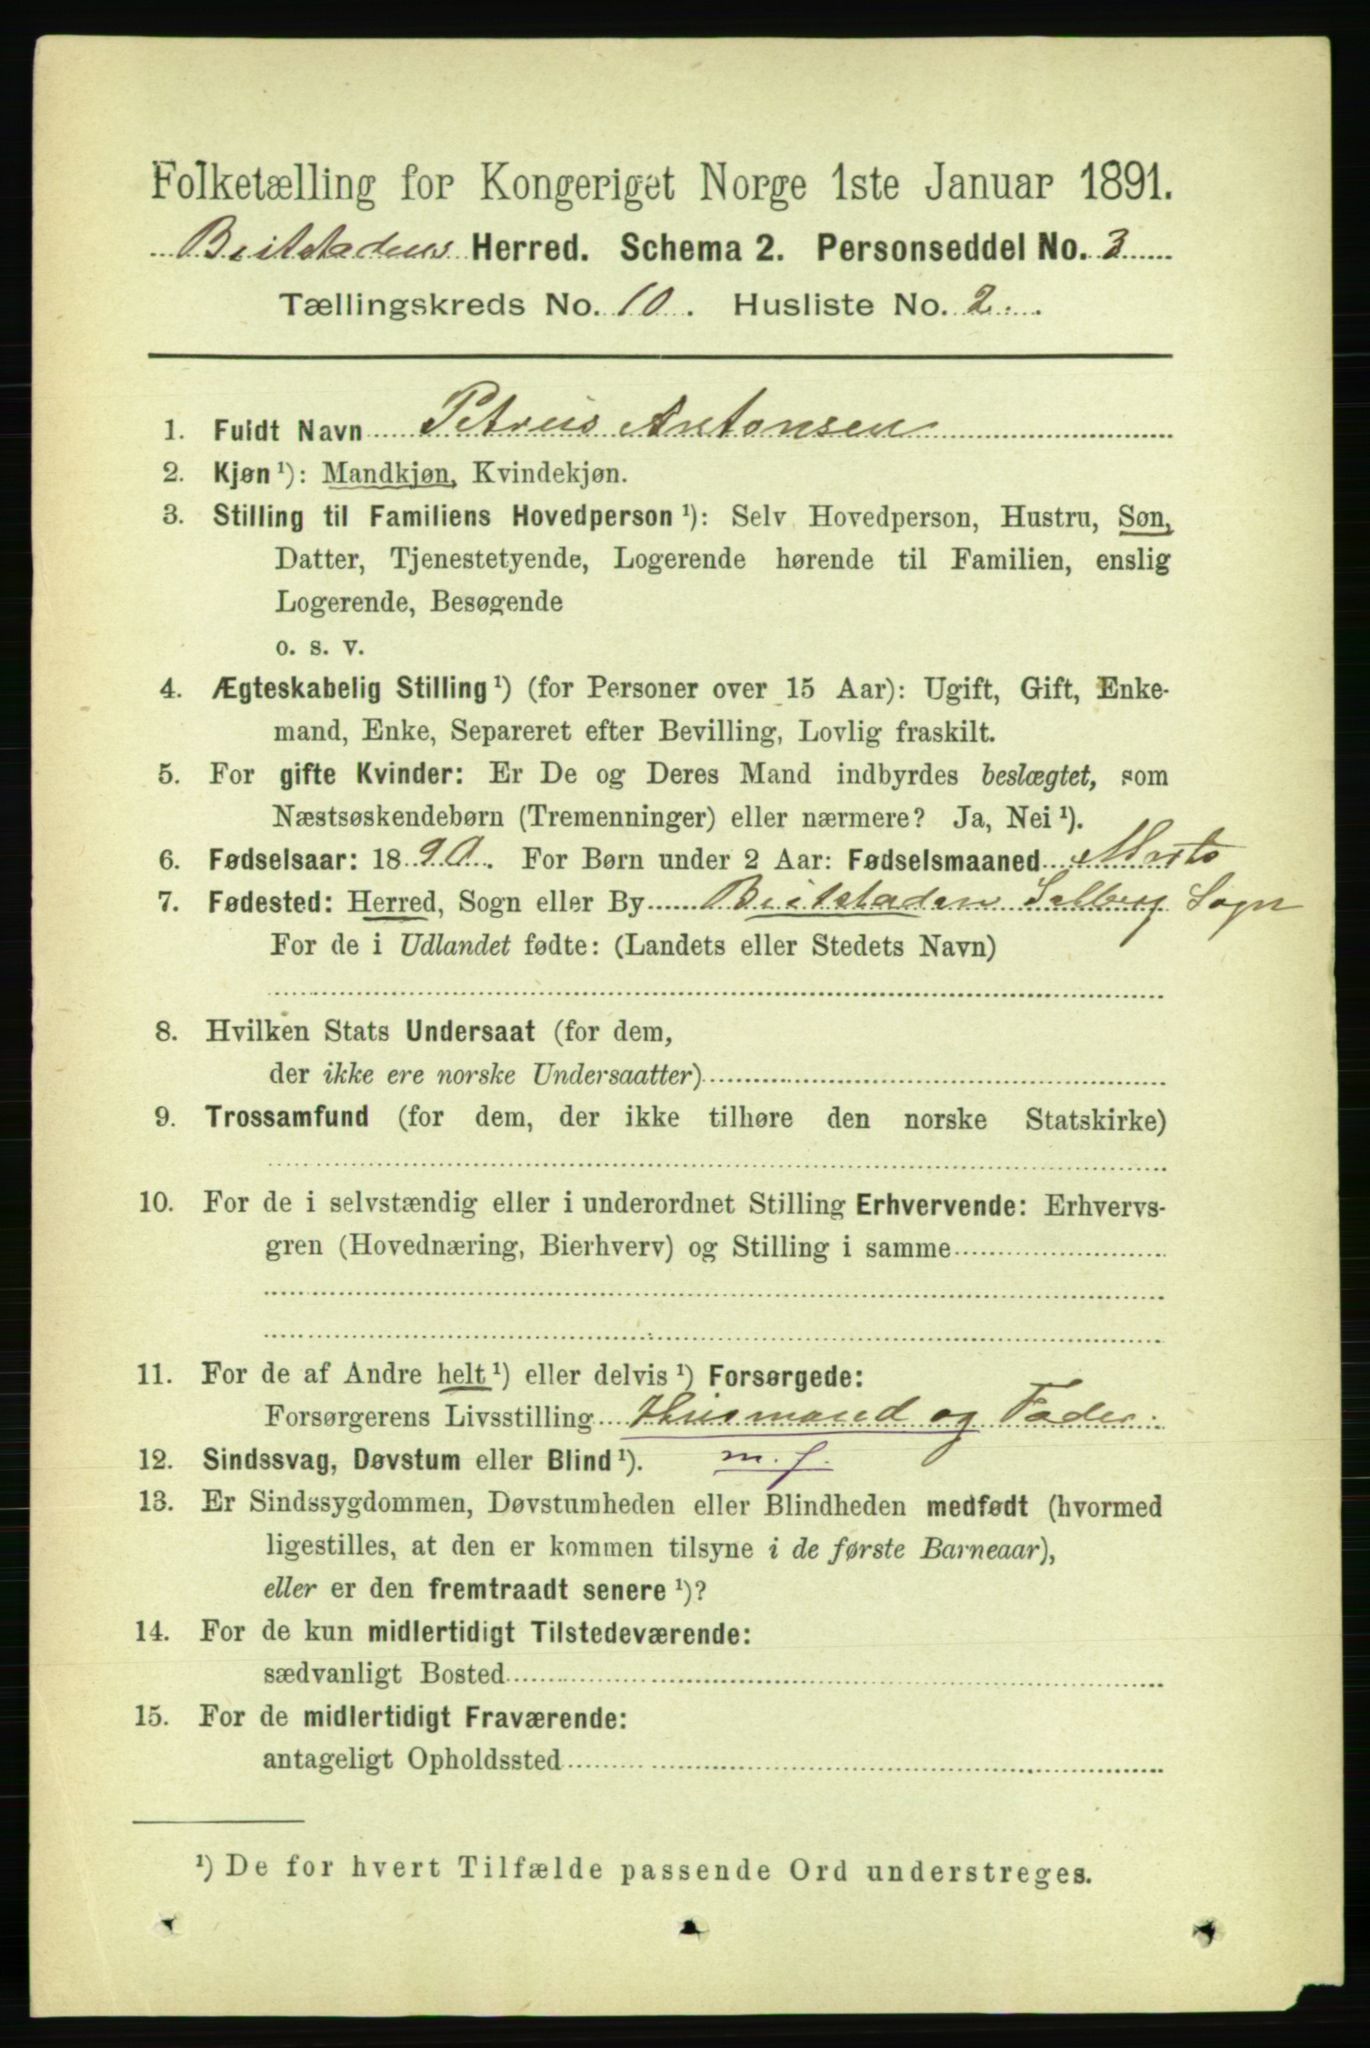 Folketælling for Kongeriget Norge 1ste Januar 1891.
Beitstadens Herred. Schema 2. Personseddel No. 3
Tællingskreds No. 10. Husliste No. 2.
1. Fuldt Navn Petrus Antonsen
2. Kjøn¹): Mandkjøn, Kvindekjøn.
3. Stilling til Familiens Hovedperson¹): Selv Hovedperson, Hustru, Søn,
Datter, Tjenestetyende, Logerende hørende til Familien, enslig
Logerende, Besøgende
o. s. v.
4. Ægteskabelig Stilling¹) (for Personer over 15 Aar): Ugift, Gift, Enke-
mand, Enke, Separeret efter Bevilling, Lovlig fraskilt.
5. For gifte Kvinder: Er De og Deres Mand indbyrdes beslægtet, som
Næstsøskendebørn (Tremenninger) eller nærmere? Ja, Nei¹).
6. Fødselsaar: 1890. For Børn under 2 Aar: Fødselsmaaned Marts
7. Fødested: Herred, Sogn eller By Beitstaden Solberg Sogn
For de i Udlandet fødte: (Landets eller Stedets Navn)
8. Hvilken Stats Undersaat (for dem,
der ikke ere norske Undersaatter)
9. Trossamfund (for dem, der ikke tilhøre den norske Statskirke)
10. For de i selvstændig eller i underordnet Stilling Erhvervende: Erhvervs-
gren (Hovednæring, Bierhverv) og Stilling i samme
11. For de af Andre helt¹) eller delvis¹) Forsørgede:
Forsørgerens Livsstilling Husmand og Fader.
12. Sindssvag, Døvstum eller Blind¹). m. f.
13. Er Sindssygdommen, Døvstumheden eller Blindheden medfødt (hvormed
ligestilles, at den er kommen tilsyne i de første Barneaar),
eller er den fremtraadt senere¹)?
14. For de kun midlertidigt Tilstedeværende:
sædvanligt Bosted
15. For de midlertidigt Fraværende:
antageligt Opholdssted
¹) De for hvert Tilfælde passende Ord understreges.